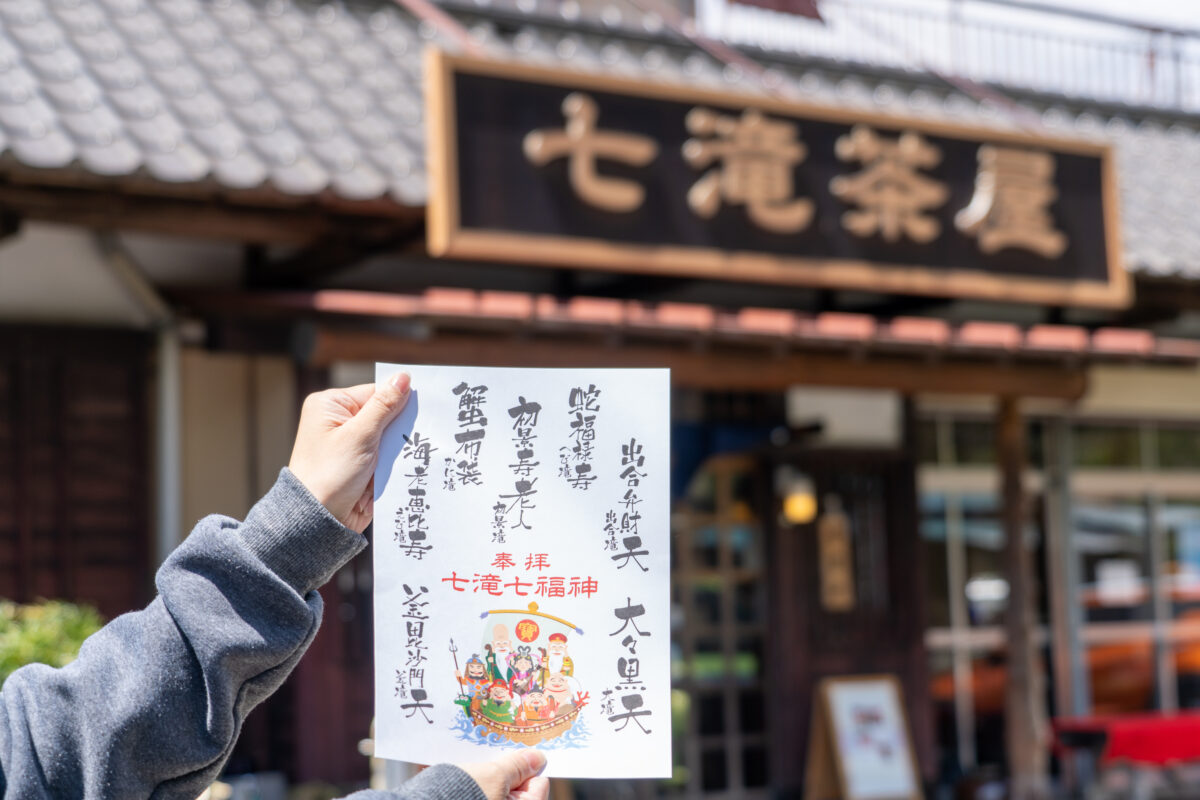 七滝茶屋
出合弁財天
出合滝
大々黒天
大滝
蛇福禄寿
へび滝
初景寿老人
初景滝
蟹布袋
かに滝
海老恵比寿
えび滝
釜毘沙門天
釜滝
奉拝
七滝七福神
寶